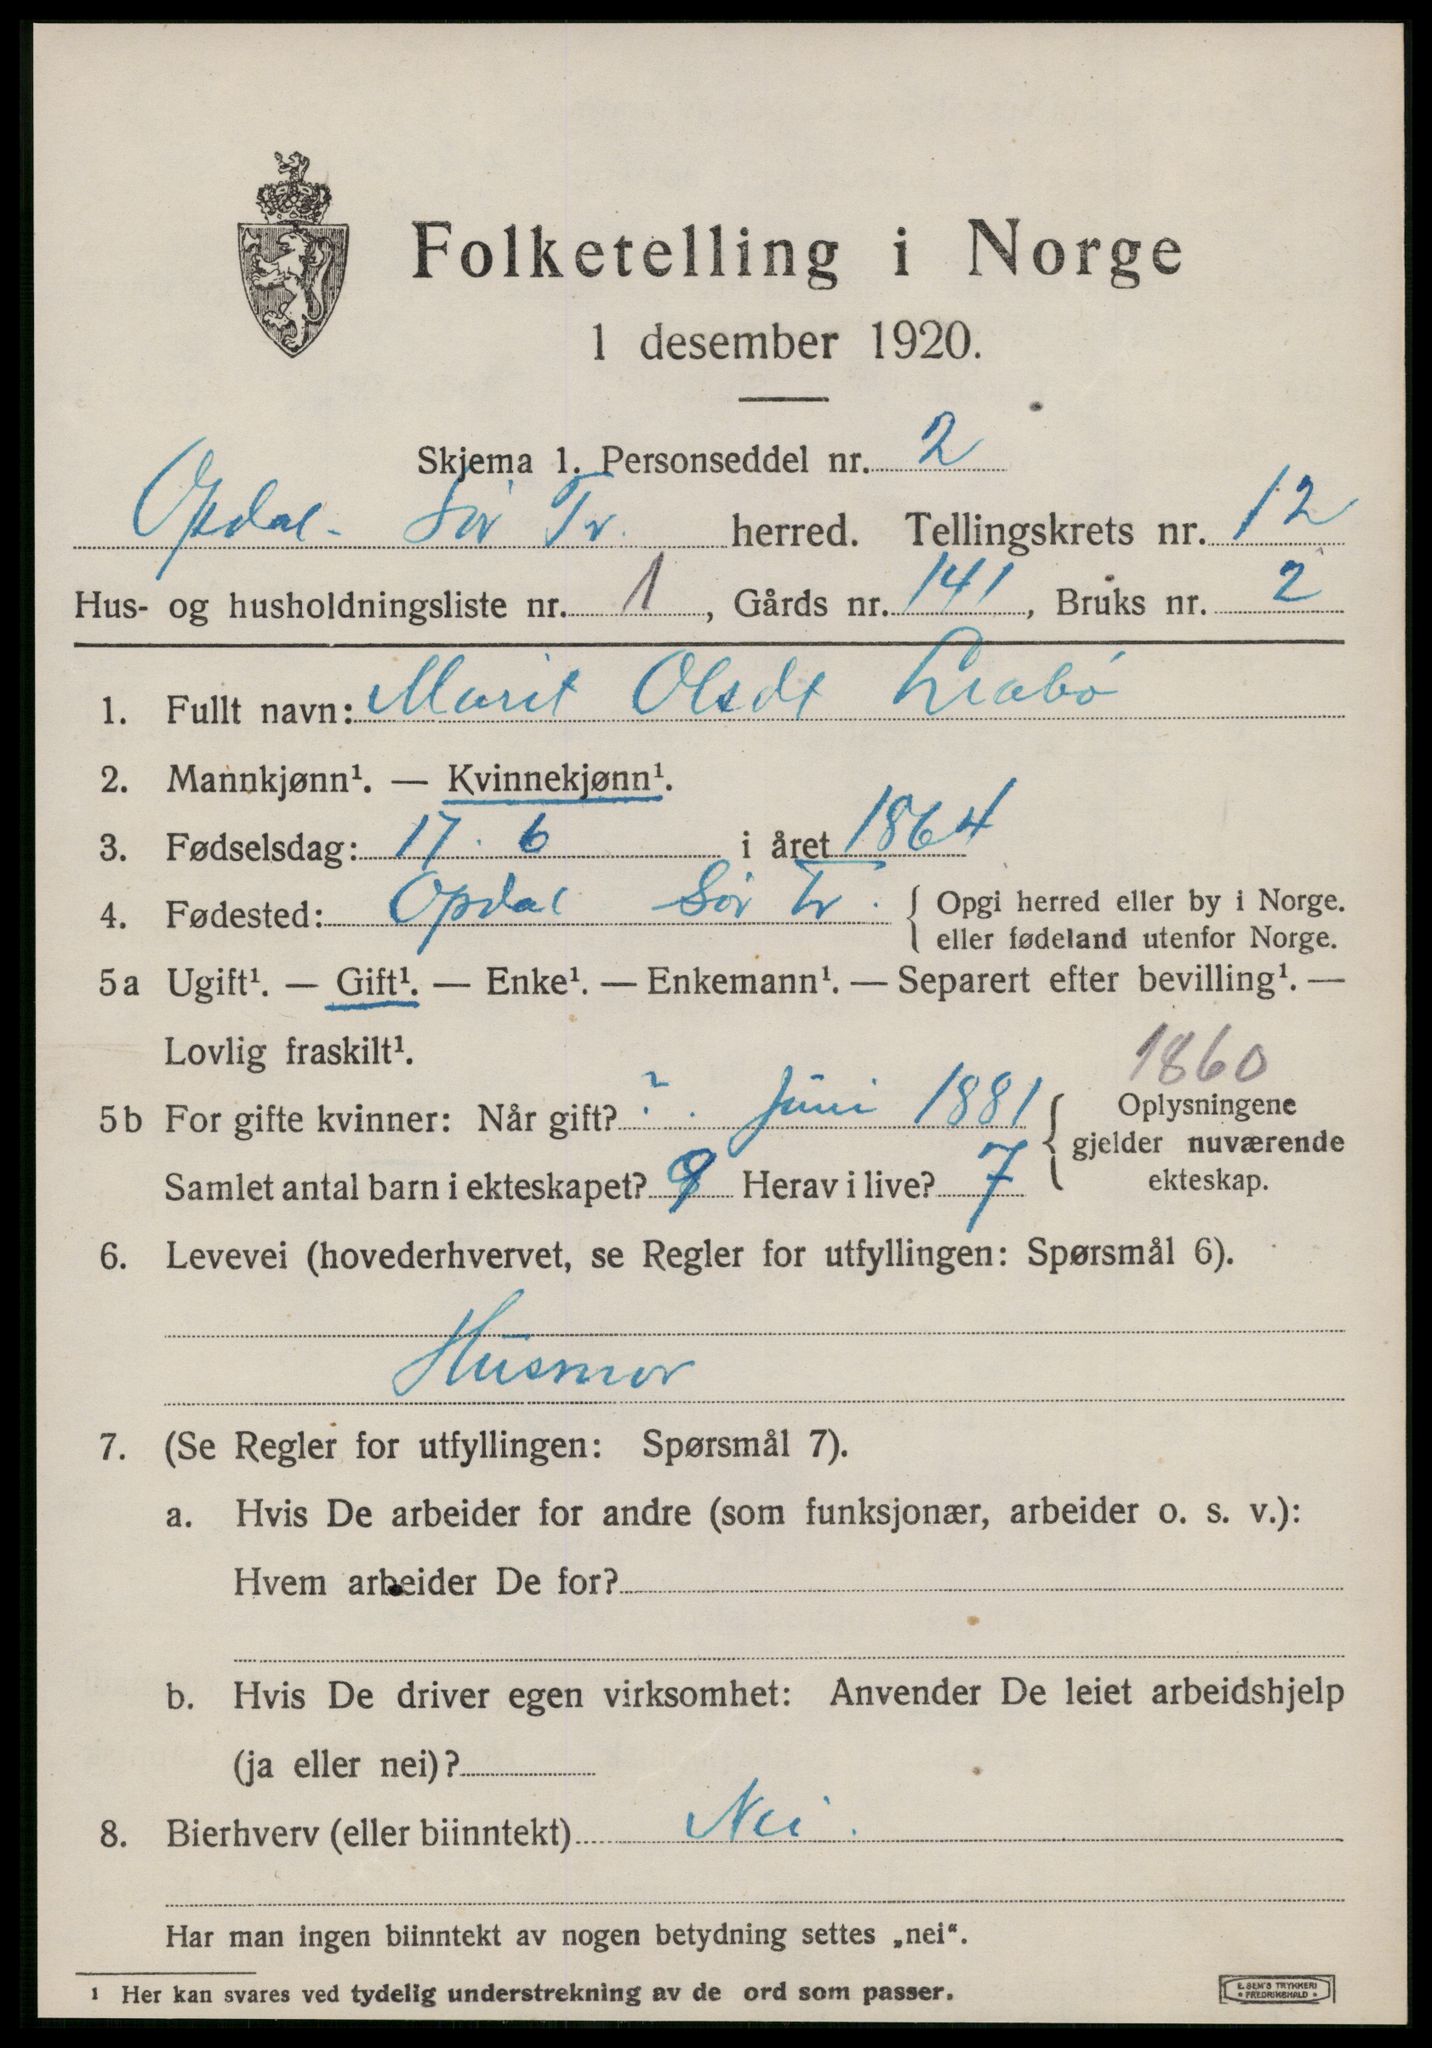 Folketelling i Norge
1 desember 1920.
Skjema 1. Personseddel nr. 2
Opdal - Sör Tr. herred. Tellingskrets nr. 12
Hus- og husholdningsliste nr. 1, Gårds nr. 141, Bruks nr. 2
1. Fullt navn: Marit Olsdt
2. Mannkjønn¹. — Kvinnekjønn¹.
3. Fødselsdag: 17. 6 i året 1864
4. Fødested: Opdal Sör Tr. { Opgi herred eller by i Norge.
eller fødeland utenfor Norge.
5a Ugift¹. — Gift¹. — Enke¹. — Enkemann¹. — Separert efter bevilling¹. —
Lovlig fraskilt¹.
1860
5b For gifte kvinner: Når gift? ?. Juni 1881 { Oplysningene
gjelder nuværende
ekteskap.
Samlet antal barn i ekteskapet? 9 Herav i live? 7
6. Levevei (hovederhvervet, se Regler for utfyllingen: Spørsmål 6).
Husmor
7. (Se Regler for utfyllingen: Spørsmål 7).
a. Hvis De arbeider for andre (som funksjonær, arbeider o. s. v.):
Hvem arbeider De for?
b. Hvis De driver egen virksomhet: Anvender De leiet arbeidshjelp
(ja eller nei)?
8. Bierhverv (eller biinntekt) Nei.
Har man ingen biinntekt av nogen betydning settes „nei“.
¹ Her kan svares ved tydelig understrekning av de ord som passer.
E. SEM'S TRYKKERI
• FREDRIKSHALD •